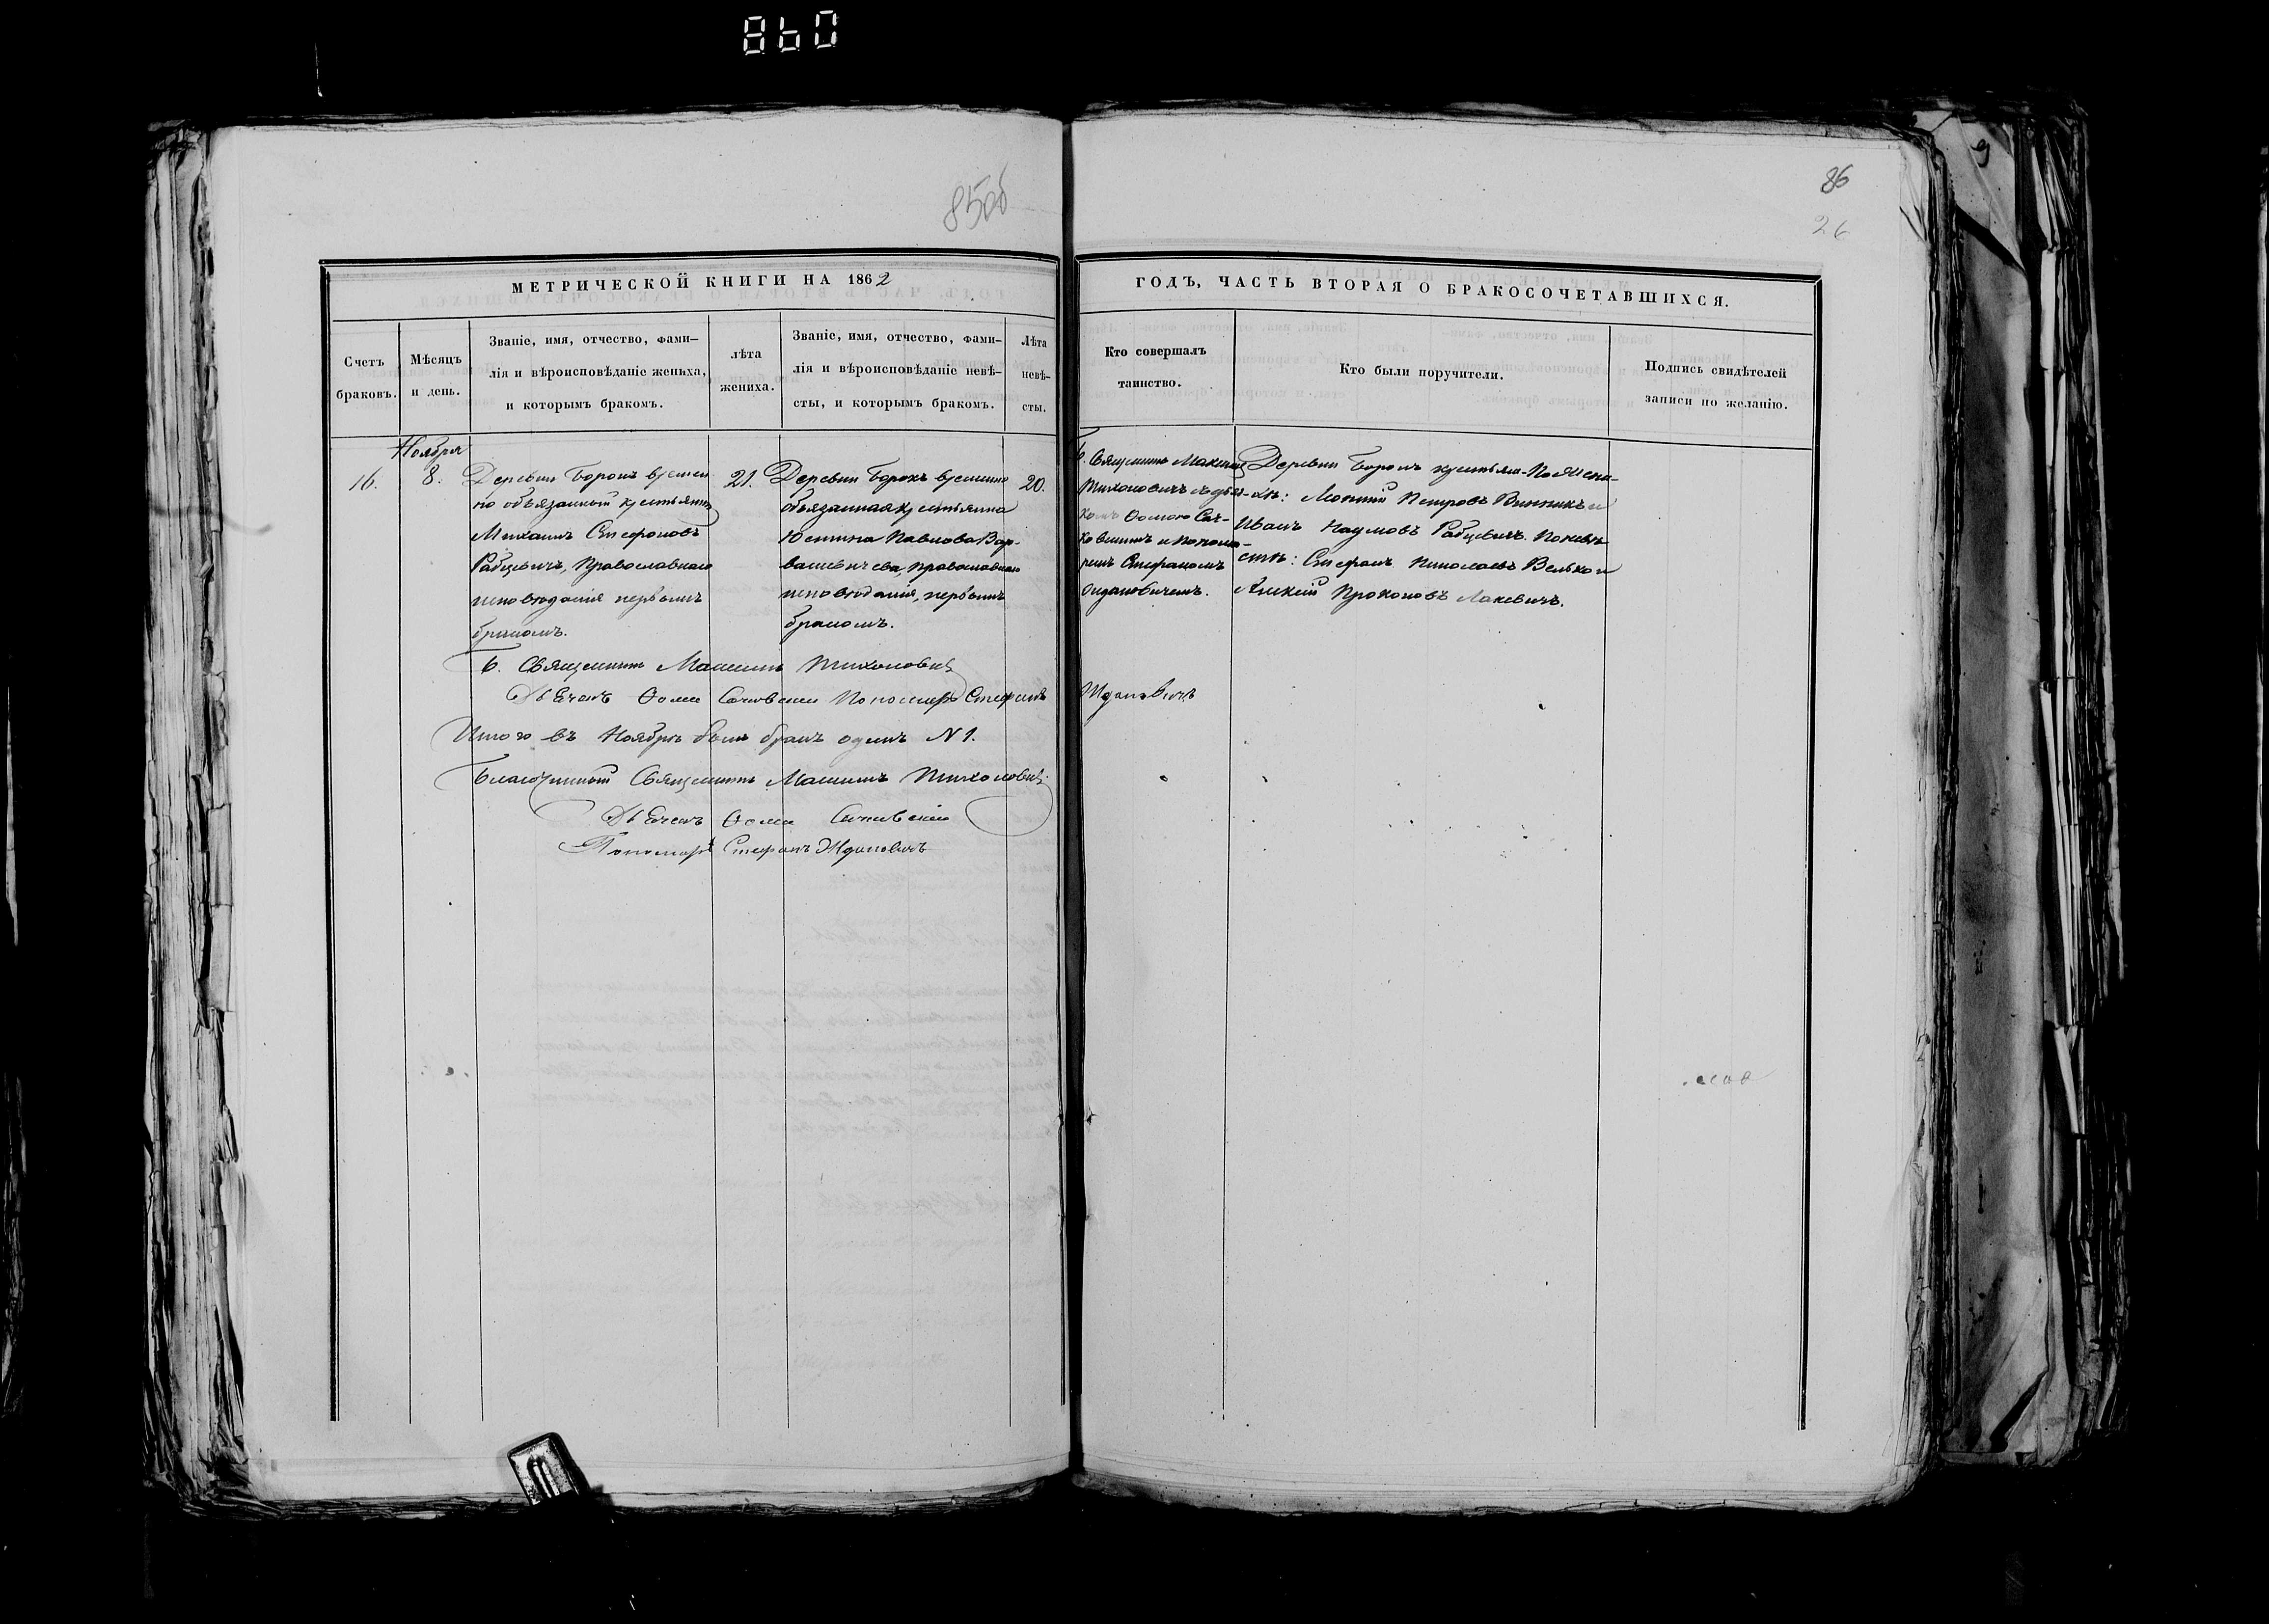 860
85об
86
26
МЕТРИЧЕСКОЙ КНИГИ НА 1862
ГОДЪ, ЧАСТЬ ВТОРАЯ О БРАКОСОЧЕТАВШИХСЯ.
Счетъ
браковъ.
Мѣсяцъ
и день.
Званіе, имя, отчество, фами-
лія и вѣроисповѣданіе жениха,
и которымъ бракомъ.
лѣта
жениха.
Званіе, имя, отчество, фами-
лія и вѣроисповѣданіе невѣ-
сты, и которымъ бракомъ.
Лѣта
невѣ-
сты.
Кто совершалъ
таинство.
Кто были поручители.
Подпись свидѣтелей
записи по желанію.
Ноября
16.
8.
Деревни Борокъ времен
но обязанный крестьянинъ
Михаилъ Стефановъ
Рабцевичъ, Православнаго
исповѣданія первымъ
бракомъ.
21.
Деревни Борокъ временно
обязанная крестьянка
Юстина Павлова Вар-
вашевичева, православнаго
исповѣданія, первымъ
бракомъ.
20.
Б. Священникъ Максимъ
Тихоновичъ съ дья-
комъ Ѳомою Сач-
ковскимъ и понома-
ремъ Стефаномъ
Ждановичемъ.
Деревни Борокъ крестьян. По жени-
хѣ: Петровъ Винникъ и
Иванъ Наумовъ Рабцевичъ. По невѣ-
стѣ: Стефанъ Николаевъ Велько и
Алексій Прокоповъ Лакевичъ.
Б. Священникъ Максимъ Тихоновичъ
Дьячекъ Ѳома Пономарь Стефанъ Ждановичъ
Итого въ Ноябрѣ былъ бракъ одинъ N 1.
Благочинный Священникъ Максимъ Тихоновичъ
Дьячекъ Ѳома
Пономарь Стефанъ Ждановичъ